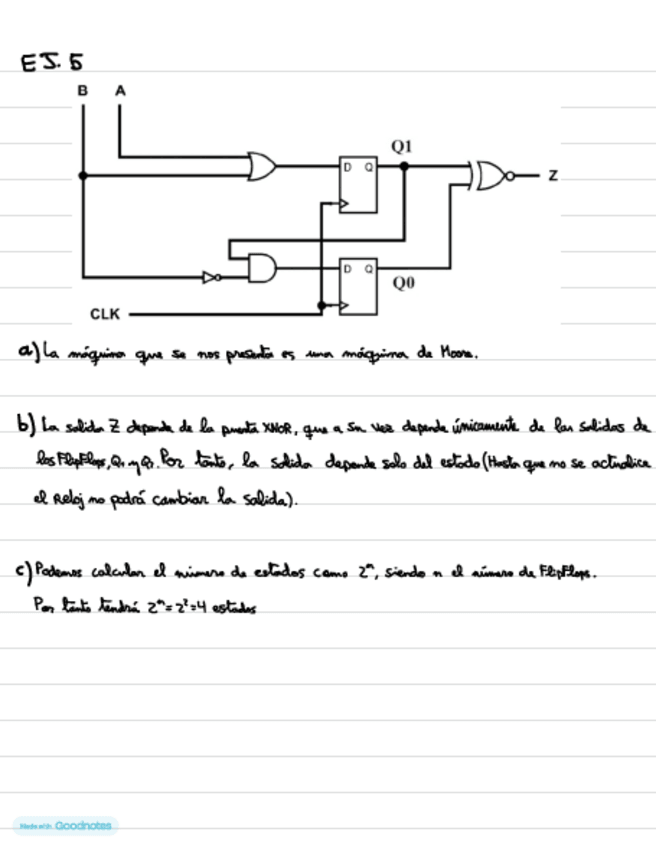 EJ. 5
B A
Q1
D Q
Z
D Q
Q0
CLK
a) La máquina que se nos presenta es una máquina de Moore.
b) La salida Z depende de la puerta XNOR, que a su vez depende únicamente de las salidas de
los FlipFlops, Q₁ y Q₀. Por tanto, la salida depende solo del estado (Hasta que no se actualice
el Reloj no podrá cambiar la salida).
c) Podemos calcular el número de estados como 2ⁿ, siendo n el número de FlipFlops.
Por tanto tendrá 2ⁿ=2²=4 estados
Made with Goodnotes